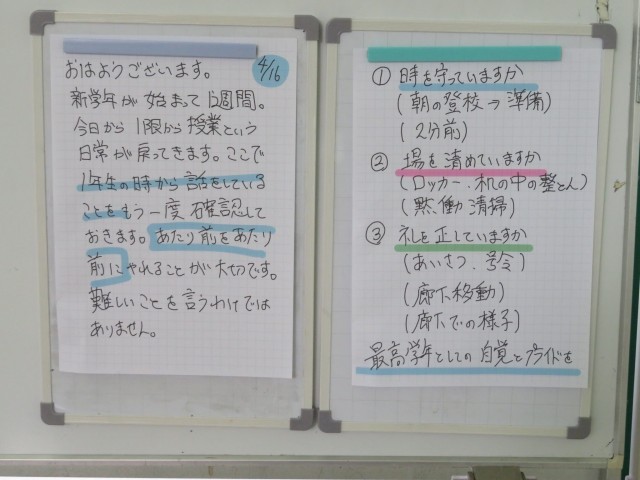 4/16
おはようございます。
新学年が始まって1週間。
今日から1限から授業という
日常が戻ってきます。ここで
1年生の時から話をしている
ことをもう一度確認して
おきます。あたり前をあたり
前にやれることが大切です。
難しいことを言うわけでは
ありません。
① 時を守っていますか
(朝の登校→準備)
(2分前)
② 場を清めていますか
(ロッカー・机の中の整とん)
(黙働清掃)
③ 礼を正していますか
(あいさつ・号令)
(廊下移動)
(廊下での様子)
最高学年としての自覚とプライドを